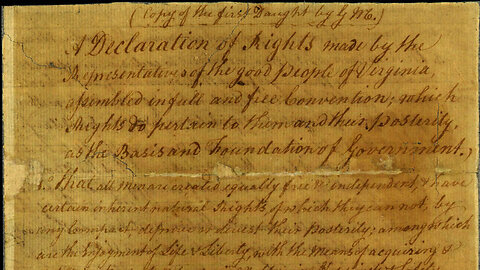 (Copy of the first Daught by G M.)
A Declaration of Rights made by the
Representatives of the good people of Virginia,
assembled in full and free Convention; which
Rights do pertain to them and their posterity,
as the Basis and Foundation of Government.
1. That all men are created equally free & independent, & have
certain inherent natural Rights, of which they can not, by
any Compact, deprive or divest their Posterity; among which
are the Enjoyment of Life & Liberty, with the Means of acquiring &